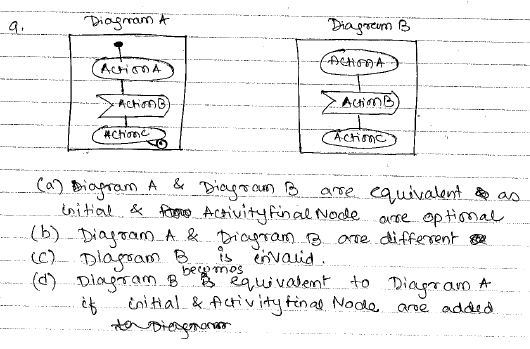 9. Diagram A Diagram B
Action A Action A
Action B Action B
Action C Action C
(a) Diagram A & Diagram B are equivalent as
initial & Activity final Node are optional
(b) Diagram A & Diagram B are different
(c) Diagram B is invalid.
(d) Diagram B becomes equivalent to Diagram A
if initial & Activity final Node are added
to Diagram